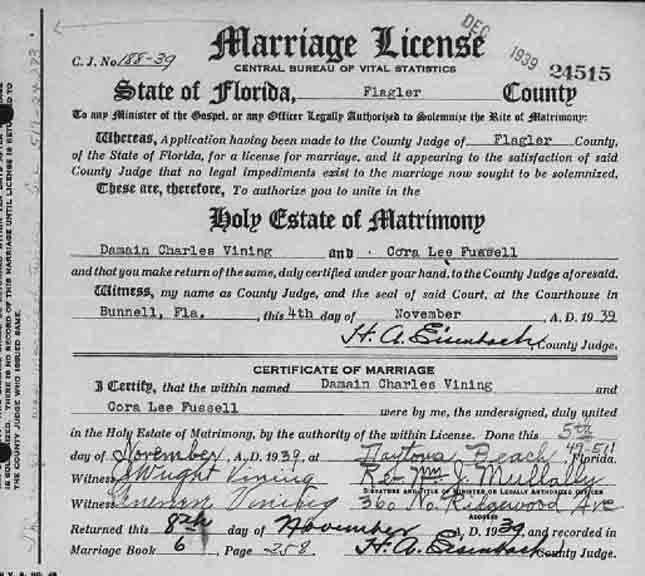 Marriage License
DEC 1939
C. J. No. 188-39
CENTRAL BUREAU OF VITAL STATISTICS
24515
State of Florida, Flagler County
To any Minister of the Gospel, or any Officer Legally Authorized to Solemnize the Rite of Matrimony:
Whereas, Application having been made to the County Judge of Flagler County,
of the State of Florida, for a license for marriage, and it appearing to the satisfaction of said
County Judge that no legal impediments exist to the marriage now sought to be solemnized,
These are, therefore, To authorize you to unite in the
Holy Estate of Matrimony
Damain Charles Vining and Cora Lee Fussell
and that you make return of the same, duly certified under your hand, to the County Judge aforesaid.
Witness, my name as County Judge, and the seal of said Court, at the Courthouse in
Bunnell, Fla., this 4th day of November A. D. 1939
H. A. Eisenbach, County Judge.
CERTIFICATE OF MARRIAGE
I Certify, that the within named Damain Charles Vining and
Cora Lee Fussell were by me, the undersigned, duly united
in the Holy Estate of Matrimony, by the authority of the within License. Done this 5th
day of November, A. D. 1939, at Daytona Beach Florida.
Witness Wright Vining Rev Wm J. Mullally
SIGNATURE AND TITLE OF MINISTER OR LEGALLY AUTHORIZED OFFICER
Witness Vining 360 No. Ridgewood Ave
ADDRESS
Returned this 8th day of November A. D. 1939, and recorded in
Marriage Book 6, Page 258. H. A. Eisenbach County Judge.
NO RECORD OF THIS MARRIAGE UNTIL LICENSE IS
IS SOLEMNIZED. THERE IS
THE COUNTY JUDGE WHO ISSUED SAME.